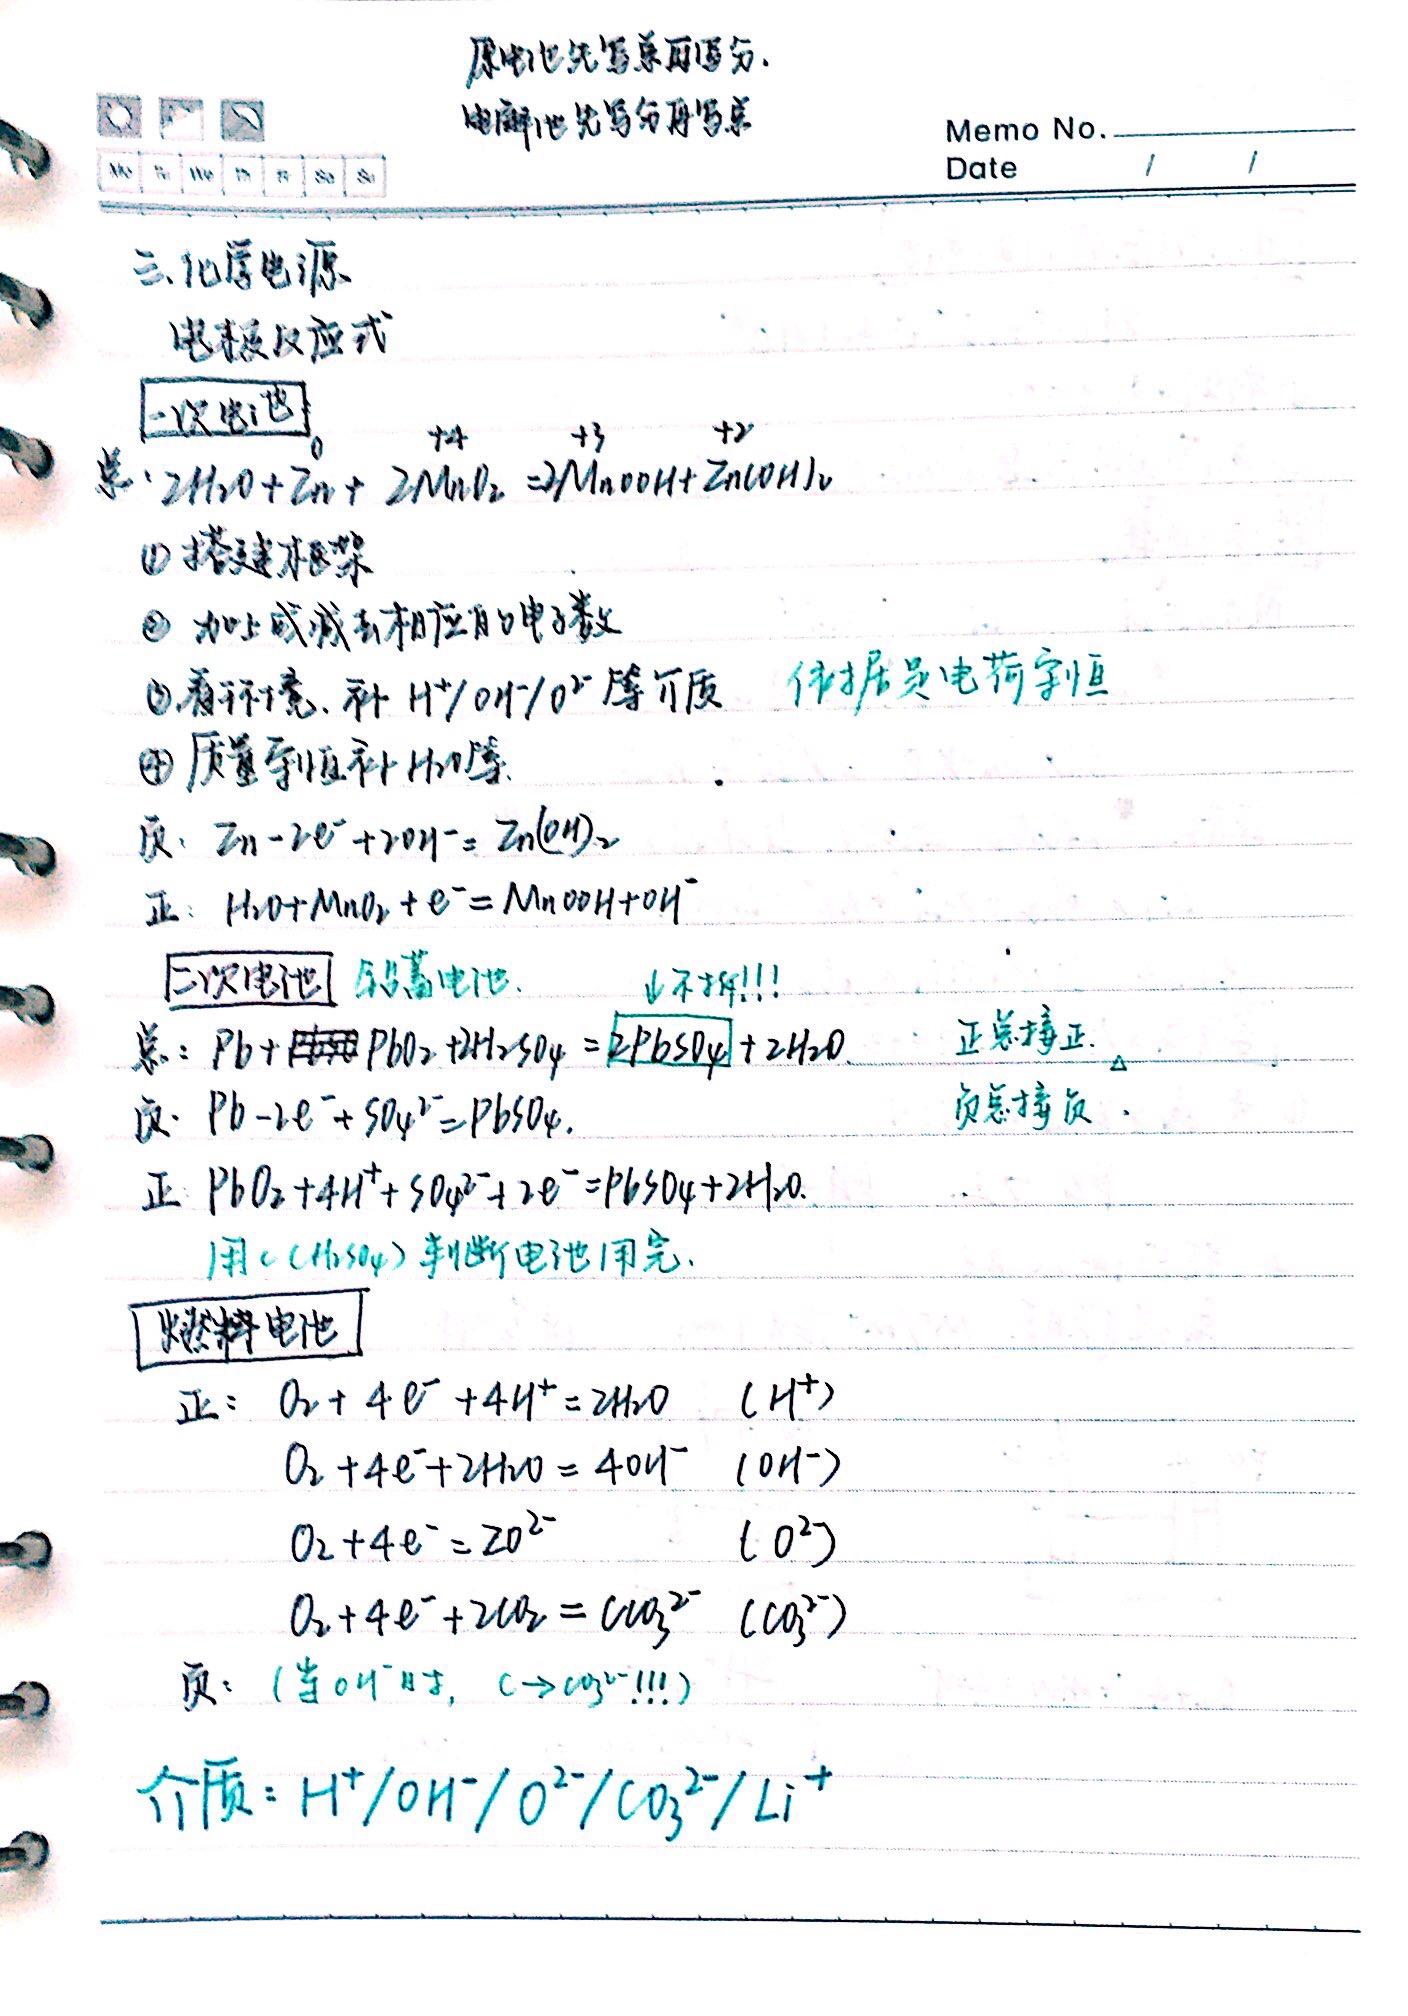 原电池先写总再写分.
电解池先写分再写总
Memo No.
Date / /
Mo Tu We Th Fr Sa Su
三.化学电源
电极反应式
一次电池
0 +4 +3 +2
总: 2H₂O+Zn+ 2MnO₂ =2MnOOH+Zn(OH)₂
① 搭建框架
② 加上或减去相应的电子数
③ 看环境. 补 H⁺/OH⁻/O²⁻ 等介质 依据是电荷守恒
④ 质量守恒补H₂O等.
负: Zn-2e⁻+2OH⁻= Zn(OH)₂
正: H₂O+MnO₂+e⁻=MnOOH+OH⁻
二次电池 铅蓄电池. ↓不拆!!!
总: Pb+PbO₂+2H₂SO₄=2PbSO₄+2H₂O. 正总接正.
负: Pb-2e⁻+SO₄²⁻=PbSO₄. 负总接负.
正: PbO₂+4H⁺+SO₄²⁻+2e⁻=PbSO₄+2H₂O.
用c(H₂SO₄)判断电池用完.
燃料电池
正: O₂+4e⁻+4H⁺=2H₂O (H⁺)
O₂+4e⁻+2H₂O=4OH⁻ (OH⁻)
O₂+4e⁻=2O²⁻ (O²⁻)
O₂+4e⁻+2CO₂=CO₃²⁻ (CO₃²⁻)
负: (当OH⁻时, C→CO₃²⁻!!!)
介质: H⁺/OH⁻/O²⁻/CO₃²⁻/Li⁺